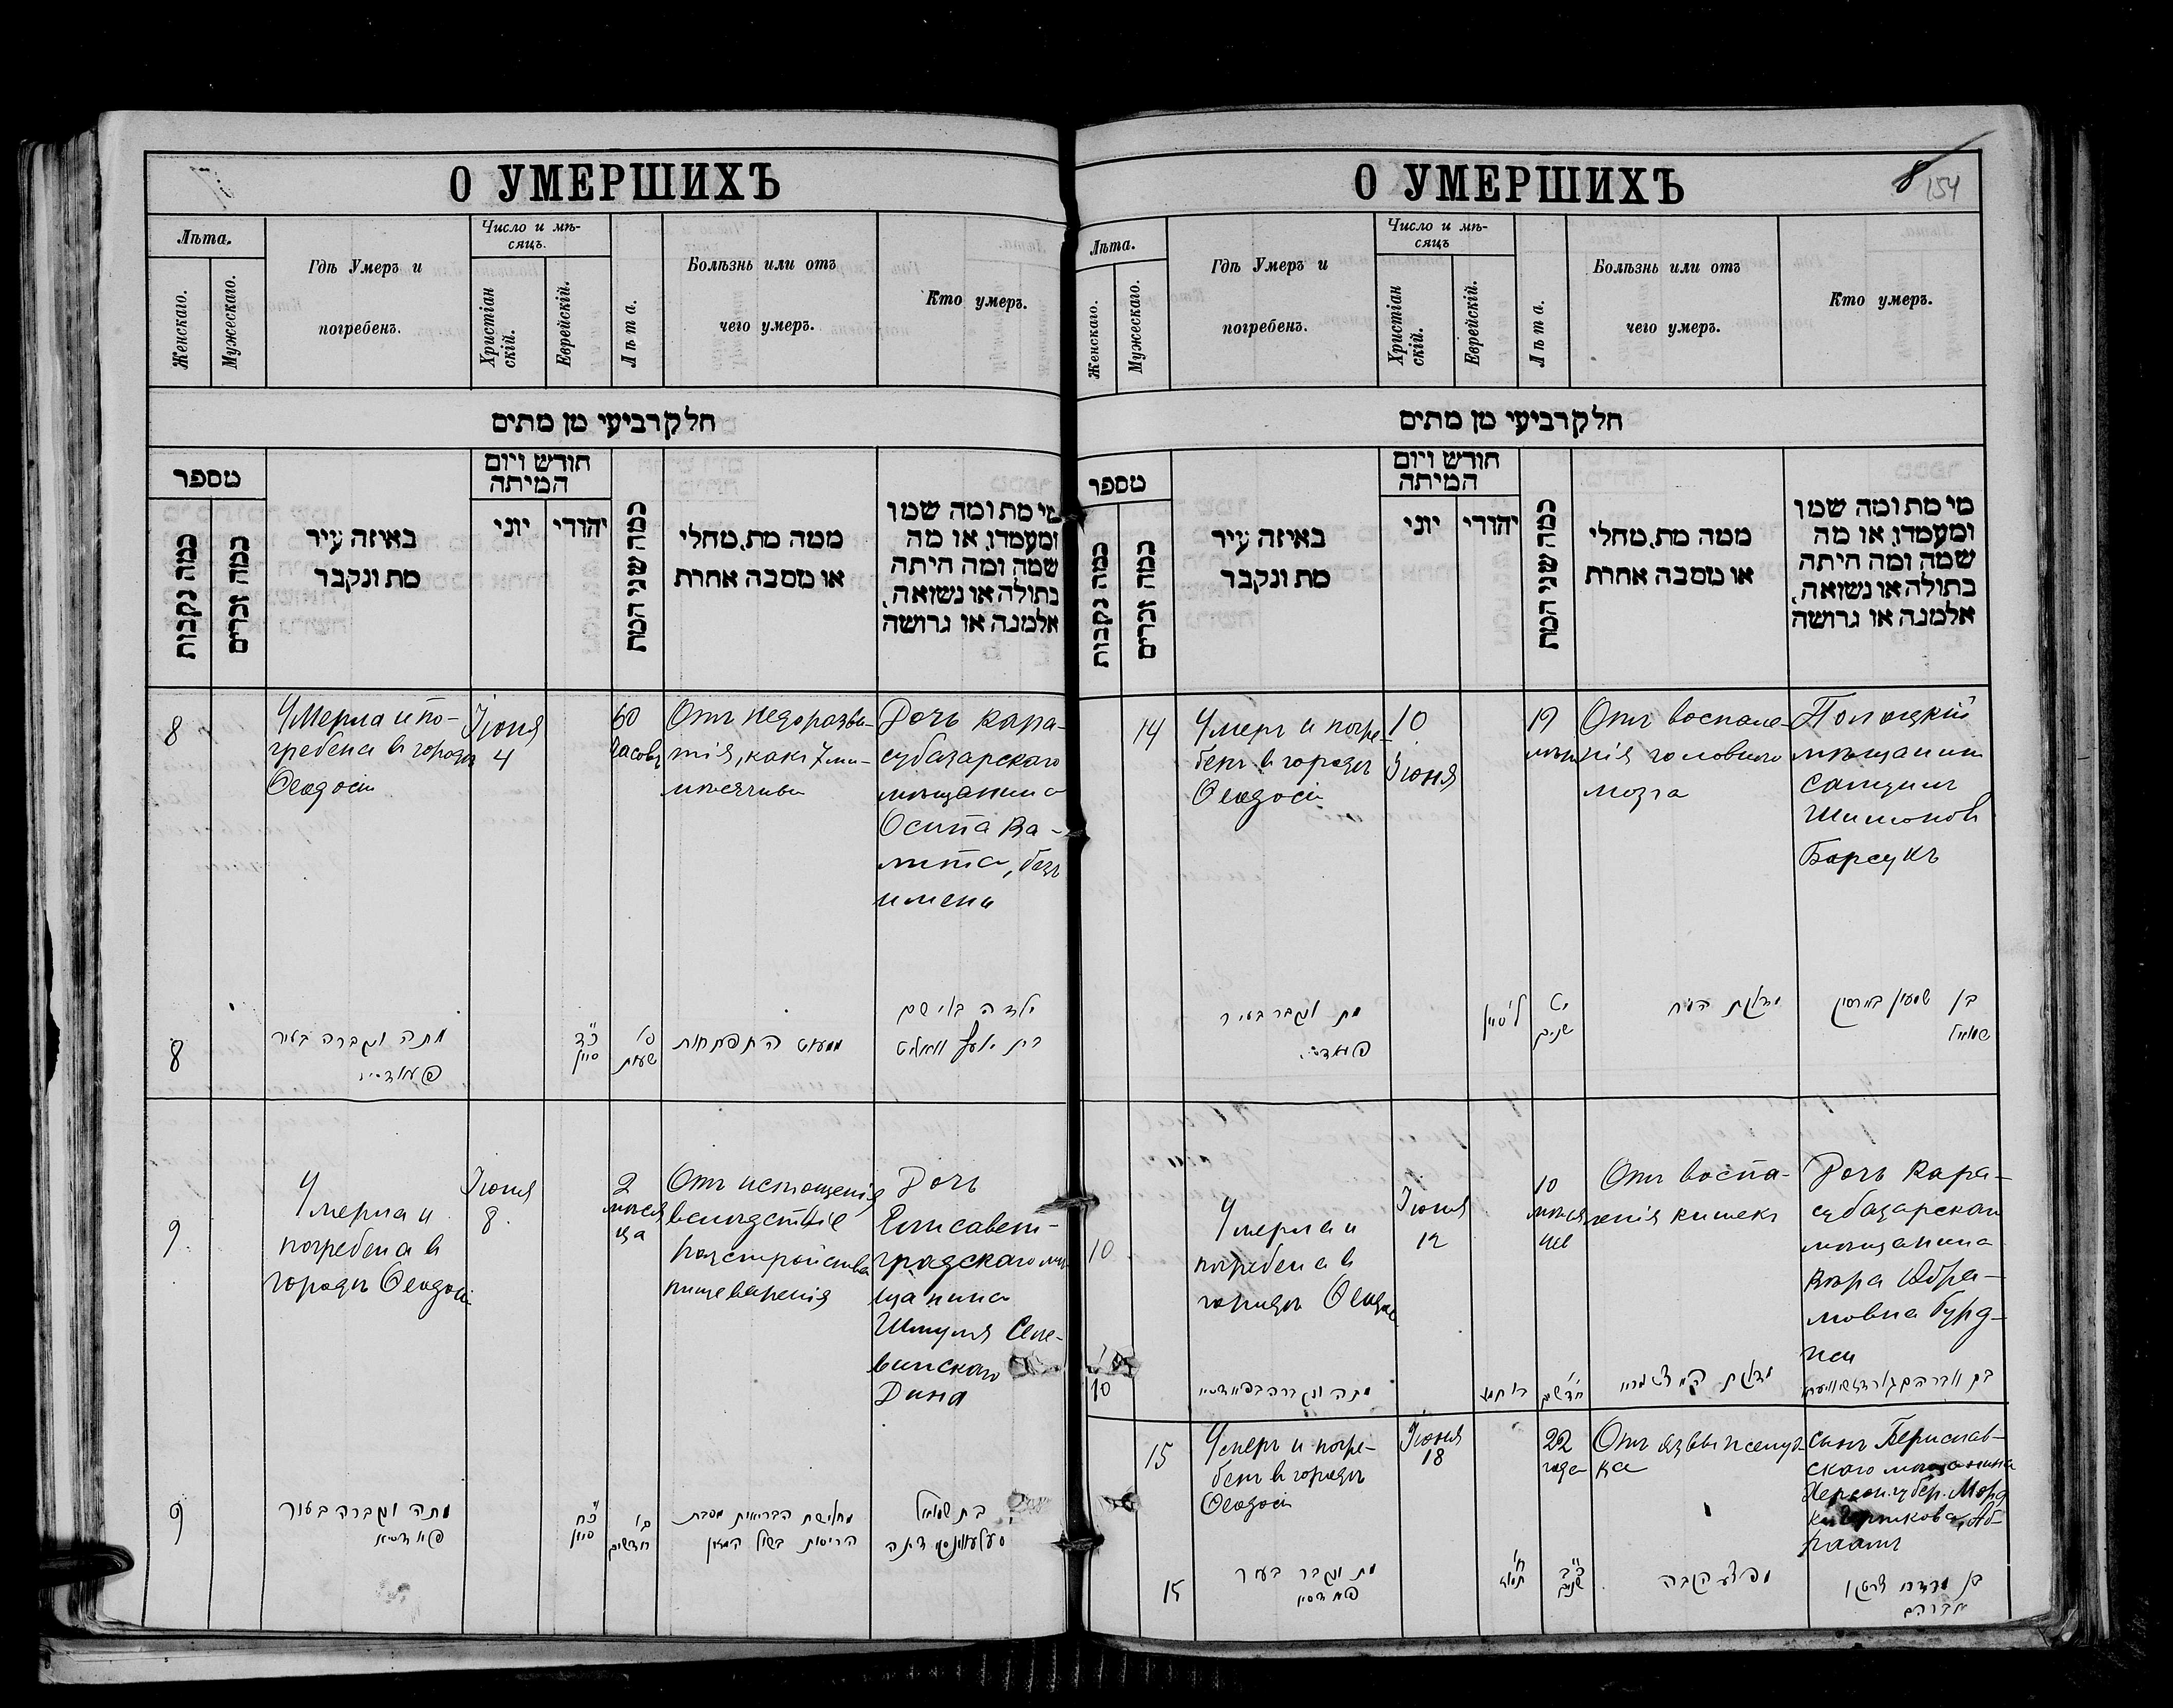 О УМЕРШИХЪ
Лѣта.
Женскаго.
Мужескаго.
Гдѣ Умеръ и
погребенъ.
Число и мѣ-
сяцъ.
Христіан
скій.
Еврейскій.
Лѣта.
Болѣзнь или отъ
чего умеръ.
Кто умеръ.
חלק רביעי מן מתים
מספר
כמה נקבות
כמה זכרים
באיזה עיר
מת ונקבר
חודש ויום
המיתה
יוני
יהודי
כמה שני המת
ממה מת, מחלי
או מסבה אחרת
מי מת ומה שמו
ומעמדו, או מה
שמה ומה היתה
בתולה או נשואה,
אלמנה או גרושה
8
Умерла и по-
гребена в городѣ
Ѳеодосіи
Іюня
4
60
часовъ
Отъ недоразви-
тія, какъ 7 ми-
мѣсячная
Дочь Кара-
субазарскаго
мѣщанина
Осипа Ва-
лита, безъ
имени
8
מתה ונקברה בעיר
כ״ד
סיון
ס׳
שעות
ממעוט התפתחות
ילדה בלי שם
בת יוסף וואליט
9
Умерла и
погребена в
городѣ Ѳеодосіи
Іюня
8
2
мѣся
ца
Отъ истощенія
вслѣдствіе
разстройства
пищеваренія
Дочь
Елисавет-
градскаго мѣ-
щанина
Шмуля Селе-
винскаго
Дина
9
מתה ונקברה בעיר
כ״ח
סיון
ב׳
חדשים
מחלישת הבריאות מסבת
הריסות בשול המזון
בת שמואל
סעלעווינסקי דינה
О УМЕРШИХЪ
8
154
Лѣта.
Женскаго.
Мужескаго.
Гдѣ Умеръ и
погребенъ.
Число и мѣ-
сяцъ
Христіан
скій.
Еврейскій.
Лѣта.
Болѣзнь или отъ
чего умеръ.
Кто умеръ.
חלק רביעי מן מתים
מספר
כמה נקבות
כמה זכרים
באיזה עיר
מת ונקבר
חודש ויום
המיתה
יוני
יהודי
כמה שני המת
ממה מת, מחלי
או מסבה אחרת
מי מת ומה שמו
ומעמדו, או מה
שמה ומה היתה
בתולה או נשואה,
אלמנה או גרושה
14
Умеръ и погре-
бенъ в городѣ
Ѳеодосіи
10
Іюня
19
Отъ воспале-
нія головного
мозга
Полоцкій
мѣщанинъ
Самуилъ
Шимонов
Барсукъ
מת ונקבר בעיר
ל׳ סיון
י״ט
שנים
מדלקת המוח
בן שמעון בארסוק
שמואל
10
Умерла и
погребена в
городѣ Ѳеодос
Іюня
12
10
мѣся
цев
Отъ воспа-
ленія кишекъ
Дочь Кара-
субазарскаго
мѣщанина
Вѣра Абра-
мовна Бурд-
10
מתה ונקברה
ב׳ תמוז
י׳
חדשים
מדלקת
בת אברהם
15
Умеръ и погре-
бенъ в городѣ
Ѳеодосіи
Іюня
18
22
года
Отъ язвы желуд-
ка
Сынъ Берислав-
скаго мѣщанина
Херсон. губер. Морд
Аб-
раамъ
15
מת ונקבר בעיר
ח׳
תמוז
כ״ב
שנים
מפצע הקבה
בן מרדכי
אברהם